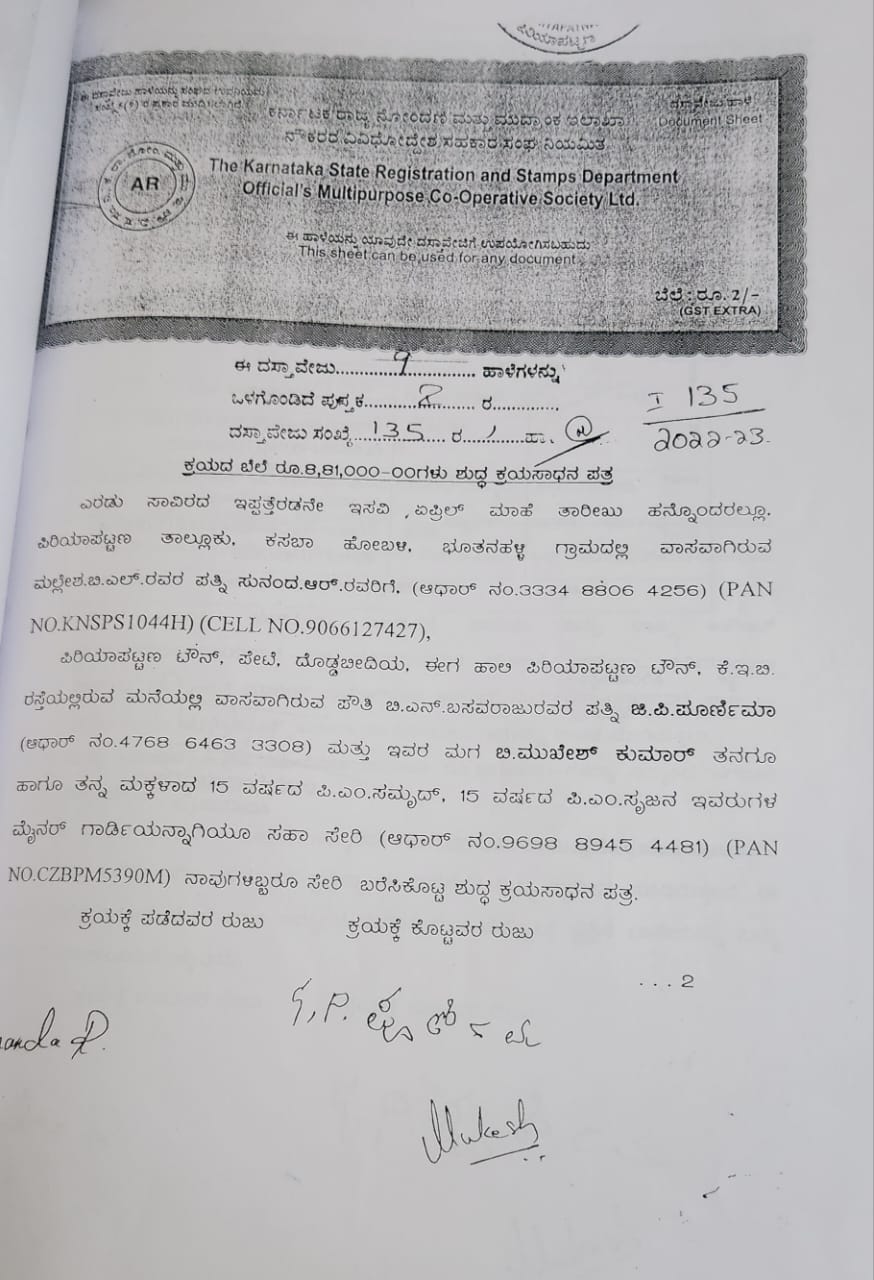 ಪಿರಿಯಾಪಟ್ಟಣ
ಈ ದಸ್ತಾವೇಜು ಹಾಳೆಯನ್ನು ಸಂಘದ ಉಪನಿಯಮ
ದಸ್ತಾವೇಜು ಹಾಳೆ
Document Sheet
ಕರ್ನಾಟಕ ರಾಜ್ಯ ನೋಂದಣಿ ಮತ್ತು ಮುದ್ರಾಂಕ ಇಲಾಖಾ
ನೌಕರರ ವಿವಿಧೋದ್ದೇಶ ಸಹಕಾರ ಸಂಘ ನಿಯಮಿತ
AR
The Karnataka State Registration and Stamps Department
Official's Multipurpose Co-Operative Society Ltd.
ಈ ಹಾಳೆಯನ್ನು ಯಾವುದೇ ದಸ್ತಾವೇಜಿಗೆ ಉಪಯೋಗಿಸಬಹುದು
This sheet can be used for any document
ಬೆಲೆ : ರೂ. 2/-
(GST EXTRA)
ಈ ದಸ್ತಾವೇಜು.............9............. ಹಾಳೆಗಳನ್ನು
ಒಳಗೊಂಡಿದೆ ಪುಸ್ತಕ.................. ರ.............
ದಸ್ತಾವೇಜು ಸಂಖ್ಯೆ....135.... ರ....1....ಹಾ.
I 135
2022-23
ಕ್ರಯದ ಬೆಲೆ ರೂ.8,81,000-00ಗಳು ಶುದ್ಧ ಕ್ರಯಸಾಧನ ಪತ್ರ
ಎರಡು ಸಾವಿರದ ಇಪ್ಪತ್ತೆರಡನೇ ಇಸವಿ ,ಏಪ್ರಿಲ್ ಮಾಹೆ ತಾರೀಖು ಹನ್ನೊಂದರಲ್ಲೂ,
ಪಿರಿಯಾಪಟ್ಟಣ ತಾಲ್ಲೂಕು, ಕಸಬಾ ಹೋಬಳಿ, ಭೂತನಹಳ್ಳಿ ಗ್ರಾಮದಲ್ಲಿ ವಾಸವಾಗಿರುವ
ಮಲ್ಲೇಶ.ಬಿ.ಎಲ್.ರವರ ಪತ್ನಿ ಸುನಂದ.ಆರ್.ರವರಿಗೆ, (ಆಧಾರ್ ನಂ.3334 8806 4256) (PAN
NO.KNSPS1044H) (CELL NO.9066127427),
ಪಿರಿಯಾಪಟ್ಟಣ ಟೌನ್, ಪೇಟೆ, ದೊಡ್ಡಬೀದಿಯ, ಈಗ ಹಾಲಿ ಪಿರಿಯಾಪಟ್ಟಣ ಟೌನ್, ಕೆ.ಇ.ಬಿ.
ರಸ್ತೆಯಲ್ಲಿರುವ ಮನೆಯಲ್ಲಿ ವಾಸವಾಗಿರುವ ಪೌತಿ ಬಿ.ಎನ್.ಬಸವರಾಜುರವರ ಪತ್ನಿ ಜಿ.ಪಿ.ಪೂರ್ಣಿಮಾ
(ಆಧಾರ್ ನಂ.4768 6463 3308) ಮತ್ತು ಇವರ ಮಗ ಬಿ.ಮುಖೇಶ್ ಕುಮಾರ್ ತನಗೂ
ಹಾಗೂ ತನ್ನ ಮಕ್ಕಳಾದ 15 ವರ್ಷದ ಪಿ.ಎಂ.ಸಮೃದ್, 15 ವರ್ಷದ ಪಿ.ಎಂ.ಸೃಜನ ಇವರುಗಳ
ಮೈನರ್ ಗಾರ್ಡಿಯನ್ನಾಗಿಯೂ ಸಹಾ ಸೇರಿ (ಆಧಾರ್ ನಂ.9698 8945 4481) (PAN
NO.CZBPM5390M) ನಾವುಗಳಿಬ್ಬರೂ ಸೇರಿ ಬರೆಸಿಕೊಟ್ಟ ಶುದ್ಧ ಕ್ರಯಸಾಧನ ಪತ್ರ.
ಕ್ರಯಕ್ಕೆ ಪಡೆದವರ ರುಜು ಕ್ರಯಕ್ಕೆ ಕೊಟ್ಟವರ ರುಜು
...2
anda R.
Mukesh